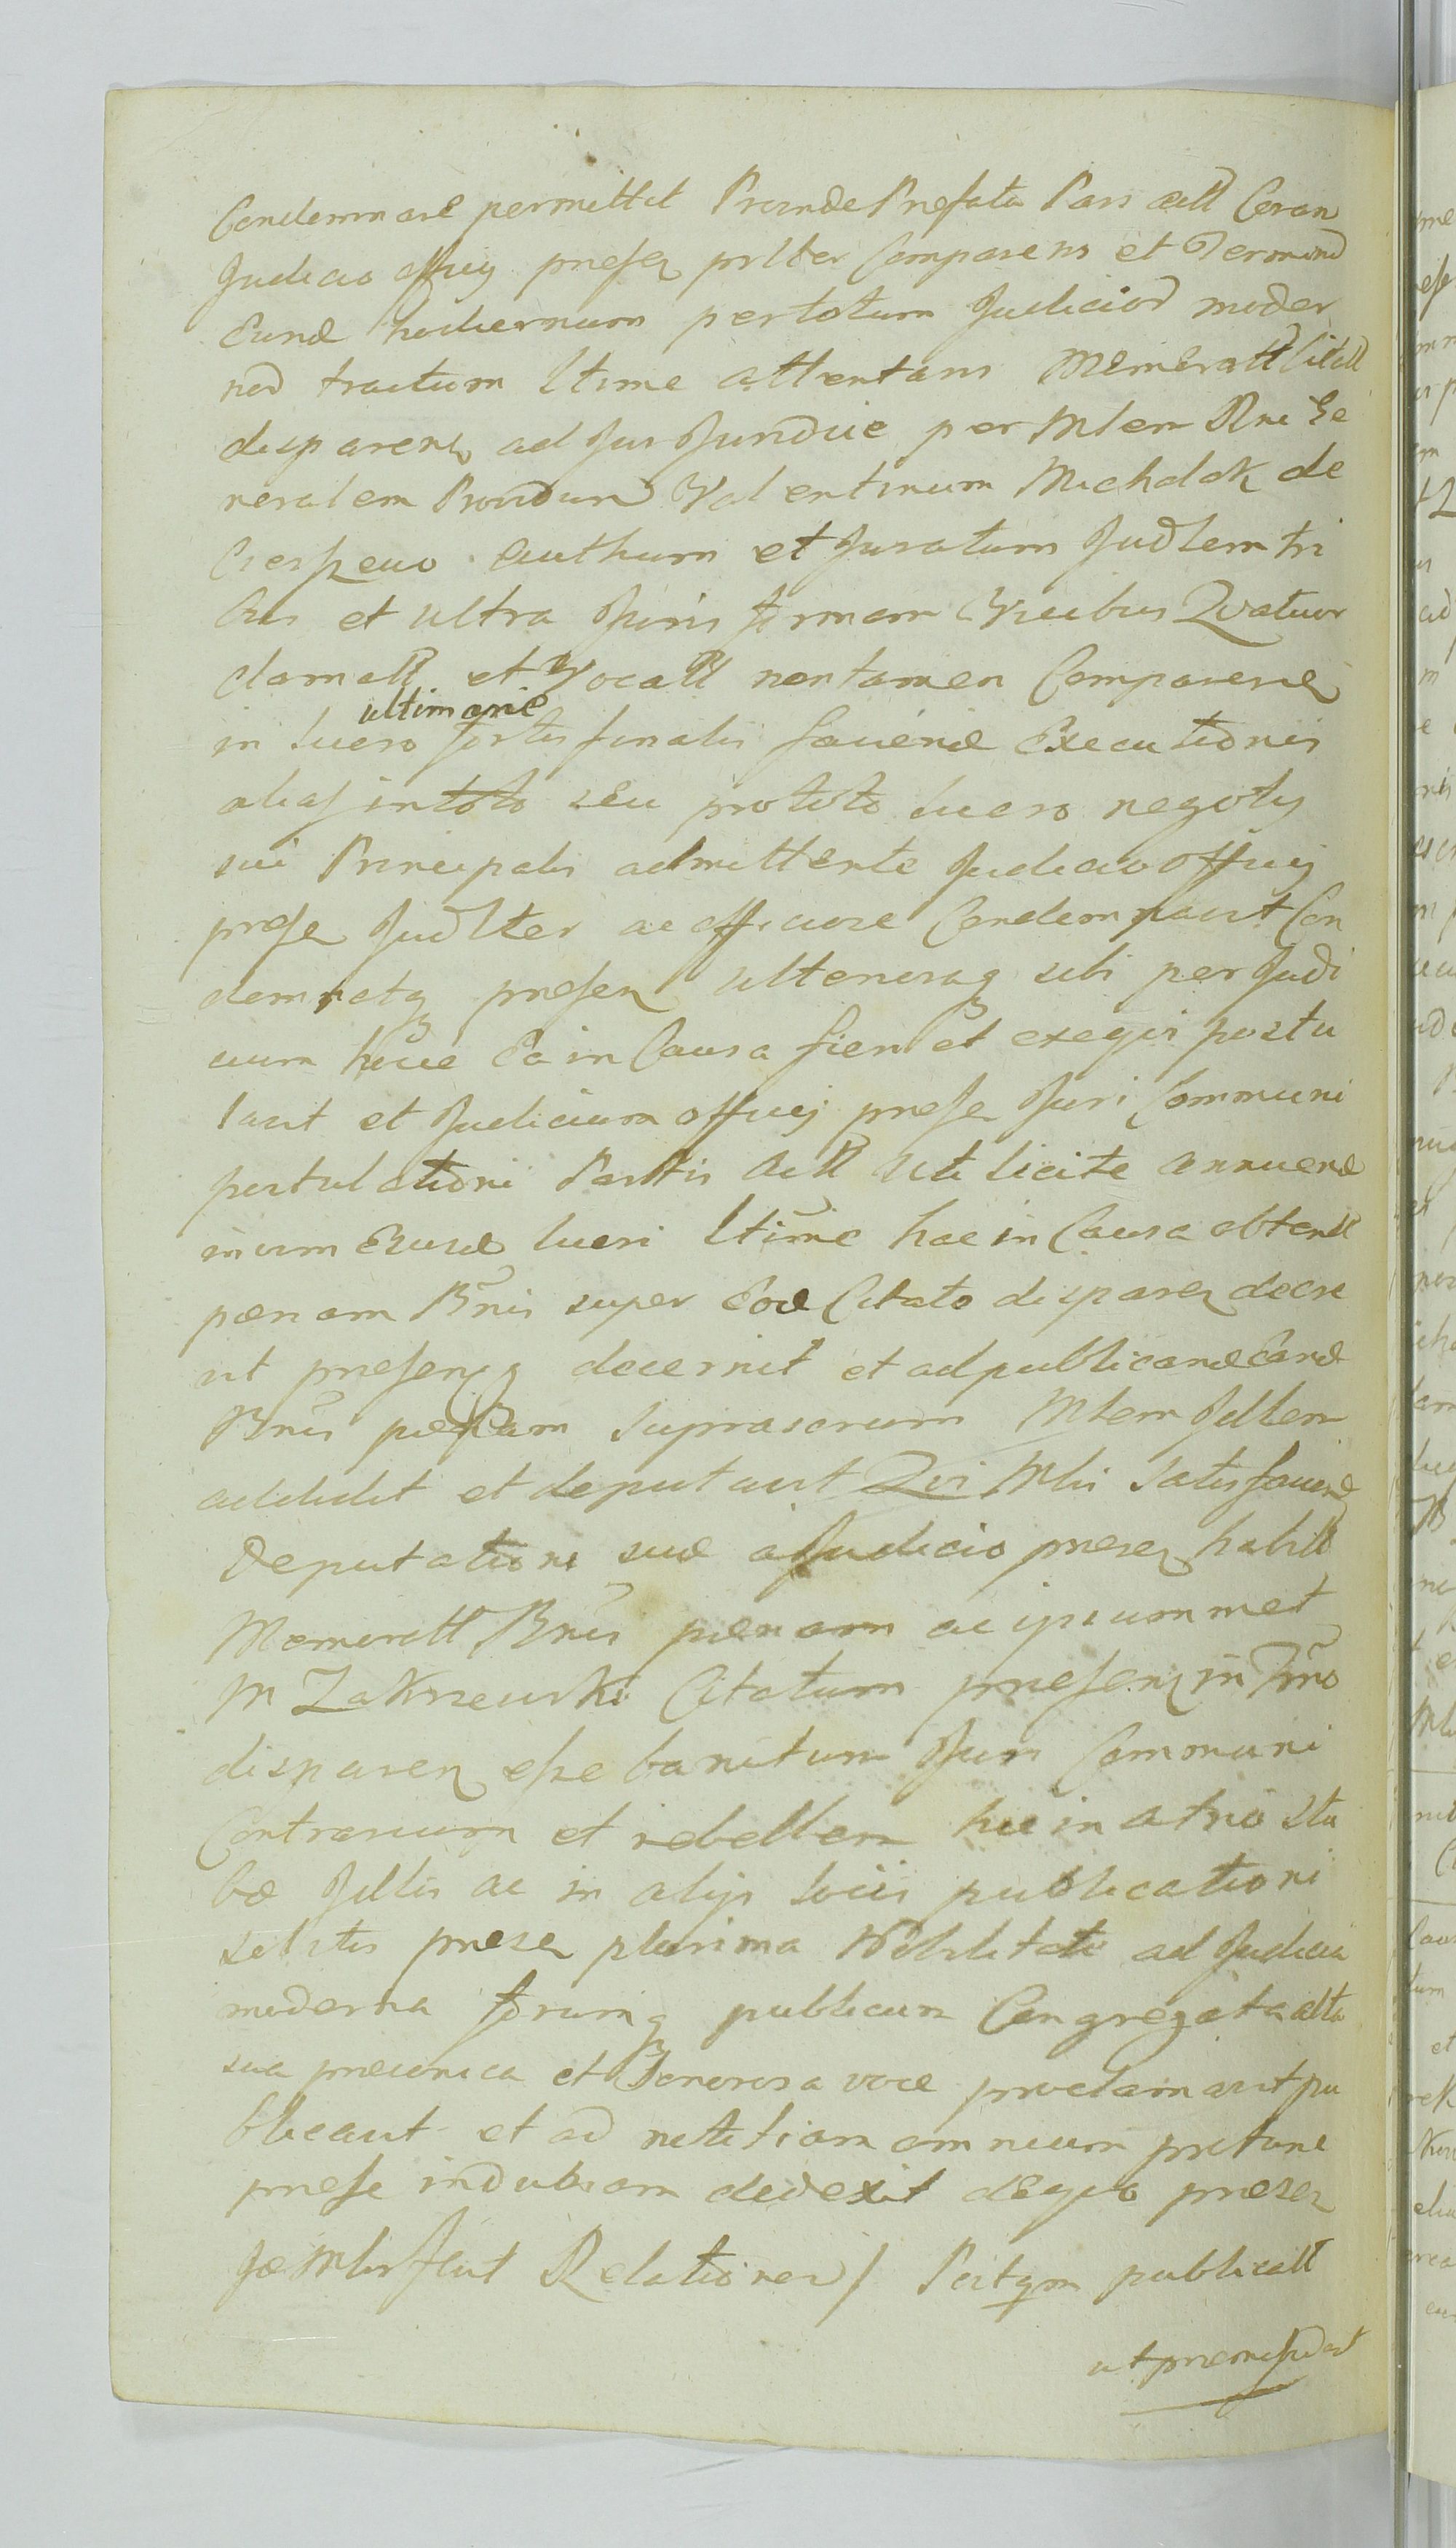 Condemnare permittit Proinde Prefata Pars actt Coram
Judicio officij presen prlter Comparens et Terminū
Eund hodiernum pertotum Judicior moder
nor tractum ltime attentans Memoratt Citatt
disparen ad Jus Juridice per Mlem Rni Ge
neralem Providum Valentinum Michalak de
authum et Juratum Judlem tri
bus et ultra Juris formam Vicibus Quatuor
clamatt et Vocatt nontamen Comparen
ultimarie
in lucro sortis finalis faciend Executionis
alias intoto seu prototo lucro negotij
sui Principalis admittente Judicio officij
presen Judlter ac officiose Condemnavit Con
demnatq presen ulteriusq sibi per Judi
cium hocce Ea in Causa fieri et exequi postu
lavit et Judicium officij prese Juri Communi
postulationi Partis Actt uti licite annuend
invim Eiusd lucri ltime hac in Causa obtentt
pœnam Bnis super Eod Citato disparen decre
vit presenq decernit et adpublicand Eand
Bnis pœnam suprascrum Mlem Jdlem
addidit et deputavit Qui Mlis satisfaciend
Deputationi suæ a Judicio presen habitt
Memoratt Bnis pœnam ac ipsummet
M Zakrzewski Citatum presen in Trno
disparen esse banitum Juri Communi
Contrarium et rebellem hic in atrio Stu
bæ Jdlis ac in alijs locis publicationi
solitis presen plurima Nobilitate ad Judicia
moderna forumq publicum Congregata alta
sua preconica et Sonorosa voce proclamavit pu
blicavit et ad notitiam omnium
prese indubiam dedexit deqvo presen
Jæ Mlis fecit Relationem / Postqm publicatt
ut premissum est